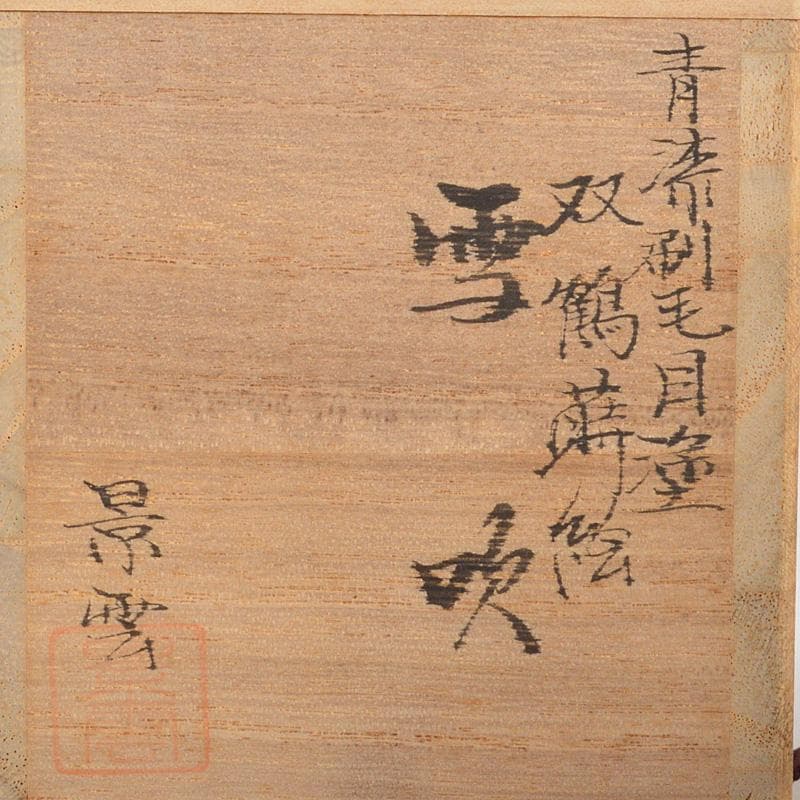 青漆刷毛目塗
双鶴蒔絵
雪吹
景雲